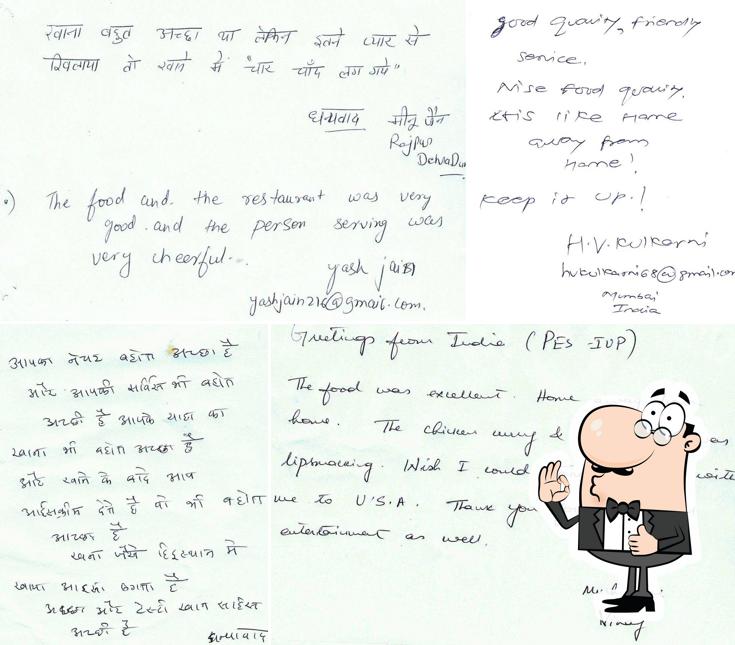 खाना बहुत अच्छा था लेकिन इतने प्यार से
खिलाया तो खाने में "चार चाँद लग गये"
धन्यवाद मीनू जैन
Rajpur
DehraDun
The food and the restaurant was very
good and the person serving was
very cheerful..
yash jain
yashjain216@gmail.com.
good quality, friendly
service.
Nise food quality.
its is like Home
away from
home!
keep it up.!
H.V. Kulkarni
hvkulkarni68@gmail.com
Mumbai
India
आपका नेचर बहोत अच्छा है
और आपकी सर्विस भी बहोत
अच्छी है आपके यहा का
खाना भी बहोत अच्छा है
और खाने के बाद आप
आईसक्रीम देते है वो भी बहोत
अच्छा है
खाना जैसे हिंदुस्थान मे
खाया लगता है
अच्छा और टेस्टी खाना
अच्छी है
धन्यवाद
Greetings from India (PES-IUP)
The food was excellent. Home
home. The chicken curry & as
lipsmacking. Wish I could write
me to U.S.A. Thank you
entertainment as well.